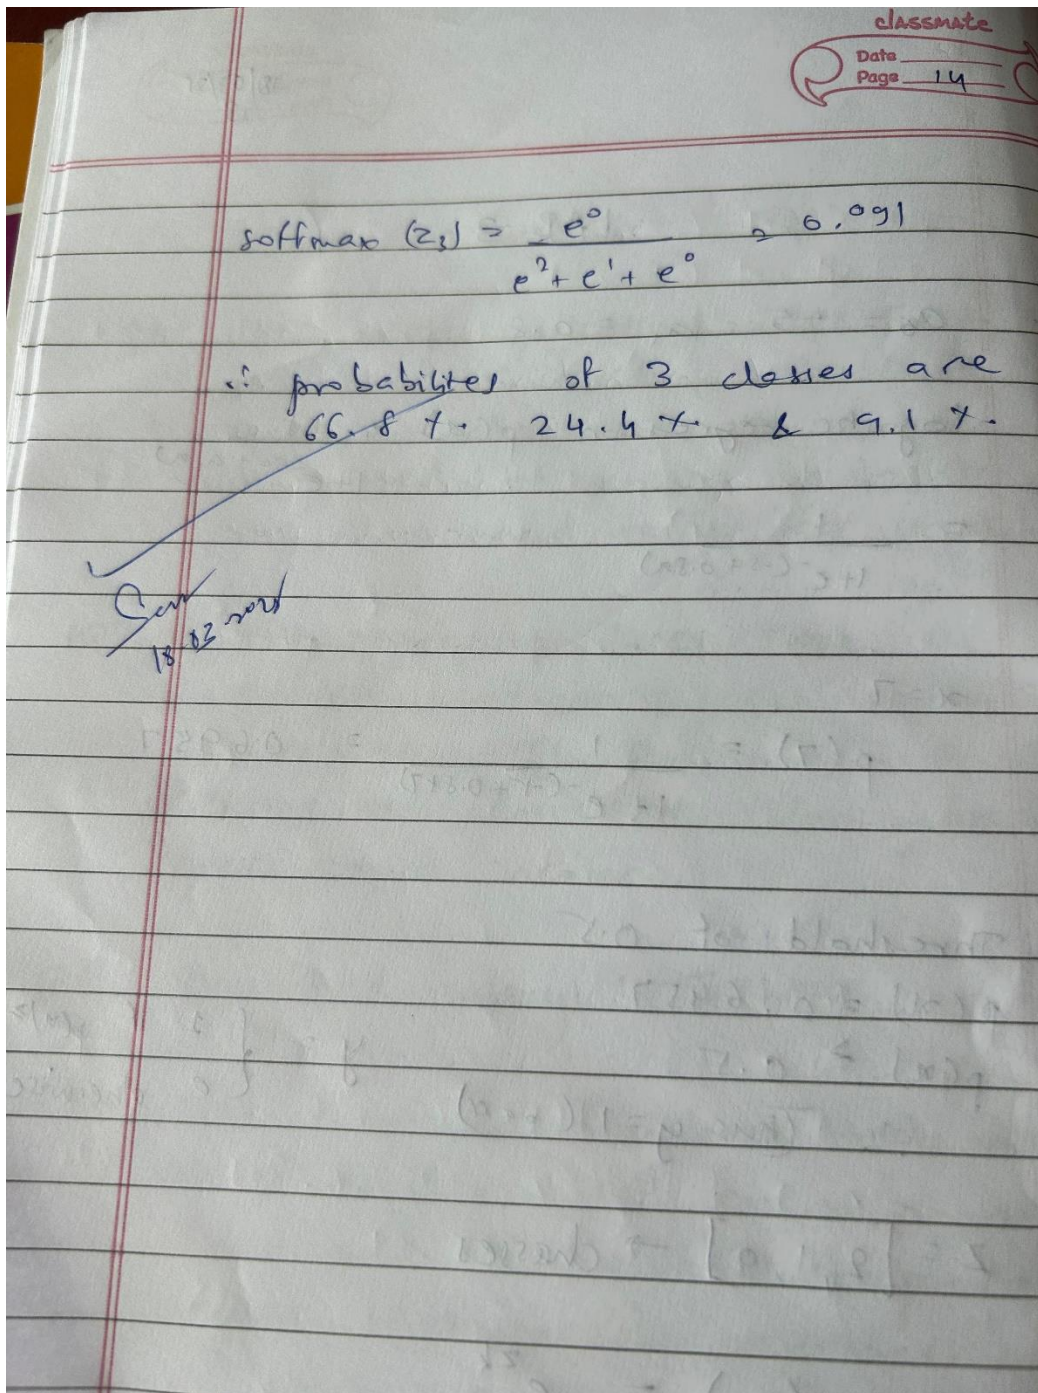 classmate
Date
Page 14
softmax (z3) = e^0 / (e^2 + e^1 + e^0) = 0.091
∴ probabilites of 3 classes are
66.8 %. 24.4 %. & 9.1 %.
18 03